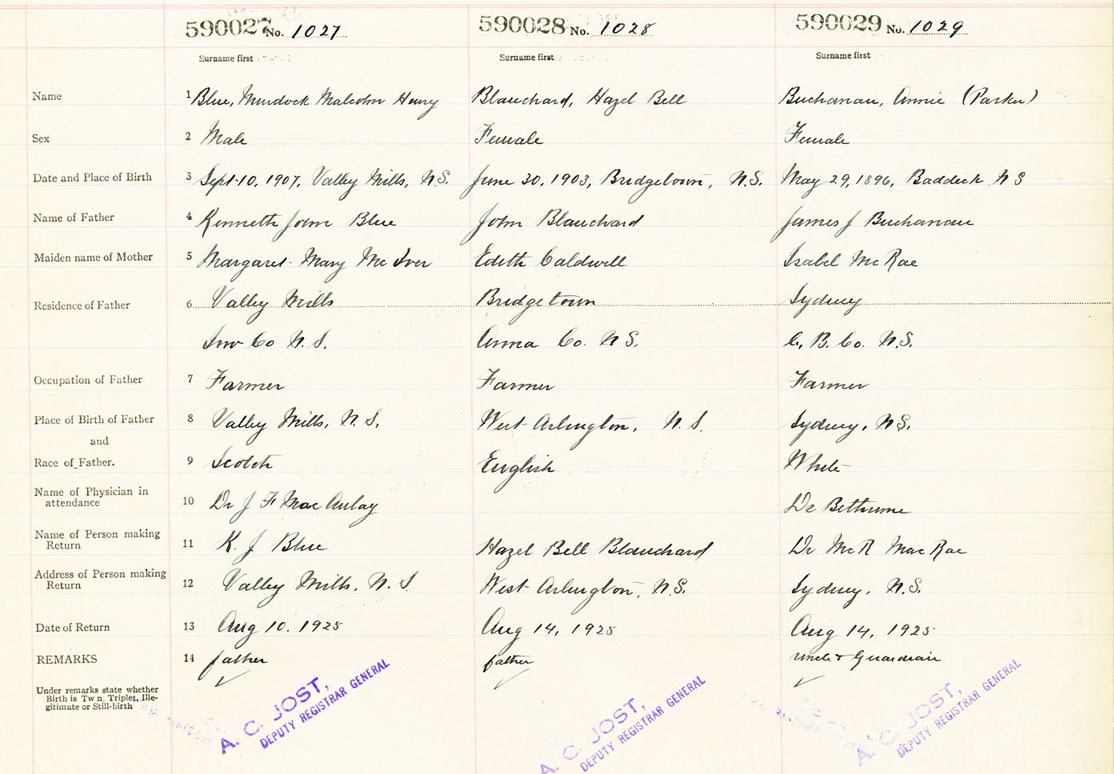 590027 No. 1027 590028 No. 1028 590029 No. 1029
Surname first Surname first Surname first
Name 1 Blue, Murdock Malcolm Henry Blauchard, Hazel Bell Buchanan, Annie (Parker)
Sex 2 Male Female Female
Date and Place of Birth 3 Sept. 10, 1907, Valley Mills, N.S. June 30, 1903, Bridgetown, N.S. May 29, 1896, Baddeck N S
Name of Father 4 Kenneth John Blue John Blauchard James J Buchanan
Maiden name of Mother 5 Margaret Mary Mc Iver Edith Caldwell Isabel Mc Rae
Residence of Father 6 Valley Mills Bridgetown Sydney
Inv Co N.S. Anna Co. N S. C. B. Co. N.S.
Occupation of Father 7 Farmer Farmer Farmer
Place of Birth of Father 8 Valley Mills, N.S. West Arlington, N.S. Sydney, N.S.
and
Race of Father. 9 Scotch English White
Name of Physician in
attendance 10 Dr J F MacAulay De Bethune
Name of Person making
Return 11 K. J Blue Hazel Bell Blauchard Dr McR MacRae
Address of Person making
Return 12 Valley Mills, N.S. West Arlington, N.S. Sydney, N.S.
Date of Return 13 Aug 10. 1925 Aug 14, 1925 Aug 14, 1925
REMARKS 14 father father uncle & Guardian
Under remarks state whether
Birth is Twin, Triplet, Ille-
gitimate or Still-birth
A. C. JOST,
DEPUTY REGISTRAR GENERAL
A. C. JOST,
DEPUTY REGISTRAR GENERAL
A. C. JOST,
DEPUTY REGISTRAR GENERAL